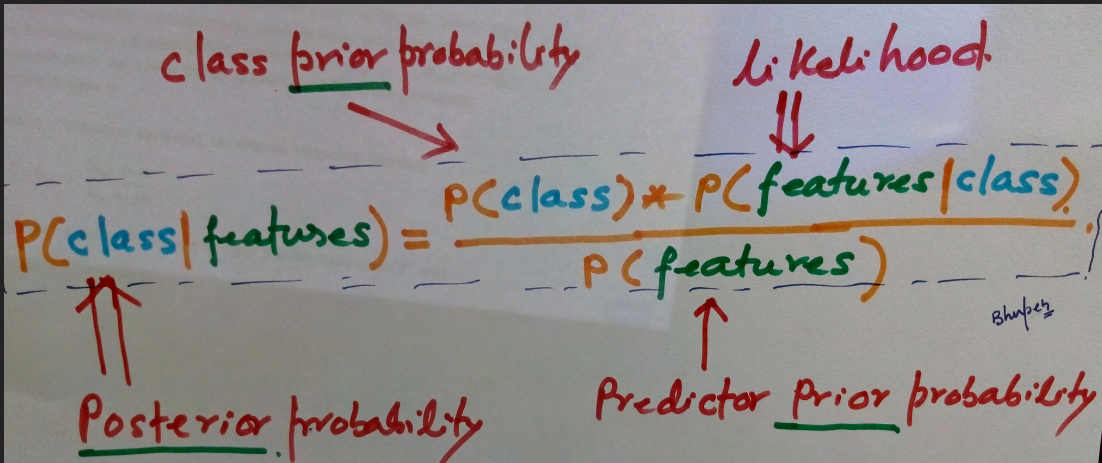 class prior probability
likelihood.
P(class) * P(features|class)
P(class|features) =
P(features)
Bhupen
Posterior probability
Predictor Prior probability